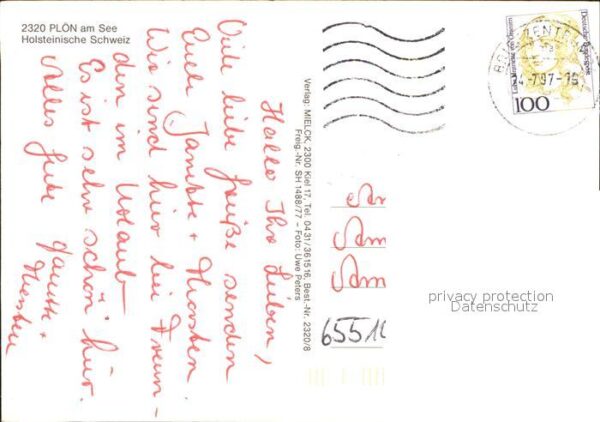 2320 PLÖN am See
Holsteinische Schweiz
Hallo Ihr Lieben,
Viele liebe Grüße senden
Euch + Thorsten
Wir sind hier bei Freun-
den im Urlaub
Es ist sehr schön hier.
Alles Gute
+
Thorsten
Verlag: MIELCK, 2300 Kiel 17, Tel. 0431/361516, Best.-Nr. 2320/8
Freig.-Nr. SH 1488/77 – Foto: Uwe Peters
Deutsche Bundespost
100
-7.97-15
privacy protection
Datenschutz